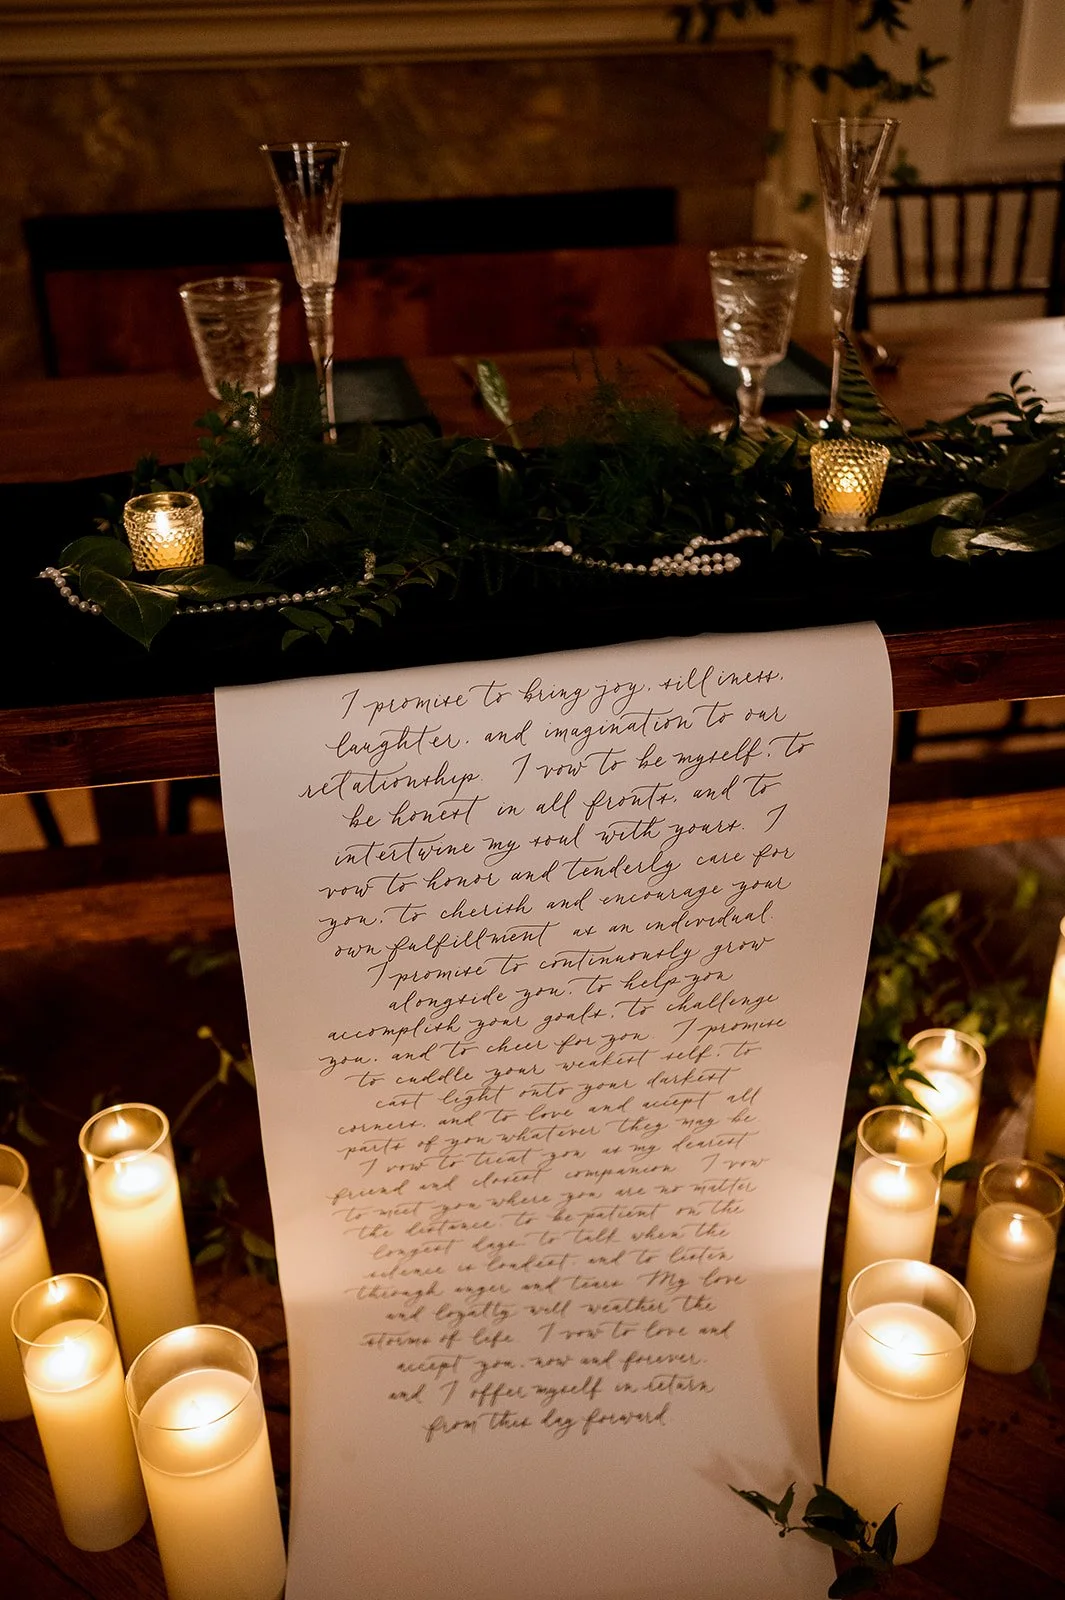 I promise to bring joy, silliness,
laughter, and imagination to our
relationship. I vow to be myself, to
be honest in all fronts, and to
intertwine my soul with yours. I
vow to honor and tenderly care for
you, to cherish and encourage your
own fulfillment as an individual.
I promise to continuously grow
alongside you, to help you
accomplish your goals, to challenge
you, and to cheer for you. I promise
to cuddle your weakest self, to
cast light onto your darkest
corners, and to love and accept all
parts of you whatever they may be.
I vow to treat you as my dearest
friend and closest companion. I vow
to meet you where you are no matter
the distance, to be patient on the
longest days, to talk when the
silence is loudest, and to listen
through anger and tears. My love
and loyalty will weather the
storms of life. I vow to love and
accept you, now and forever,
and I offer myself in return
from this day forward.